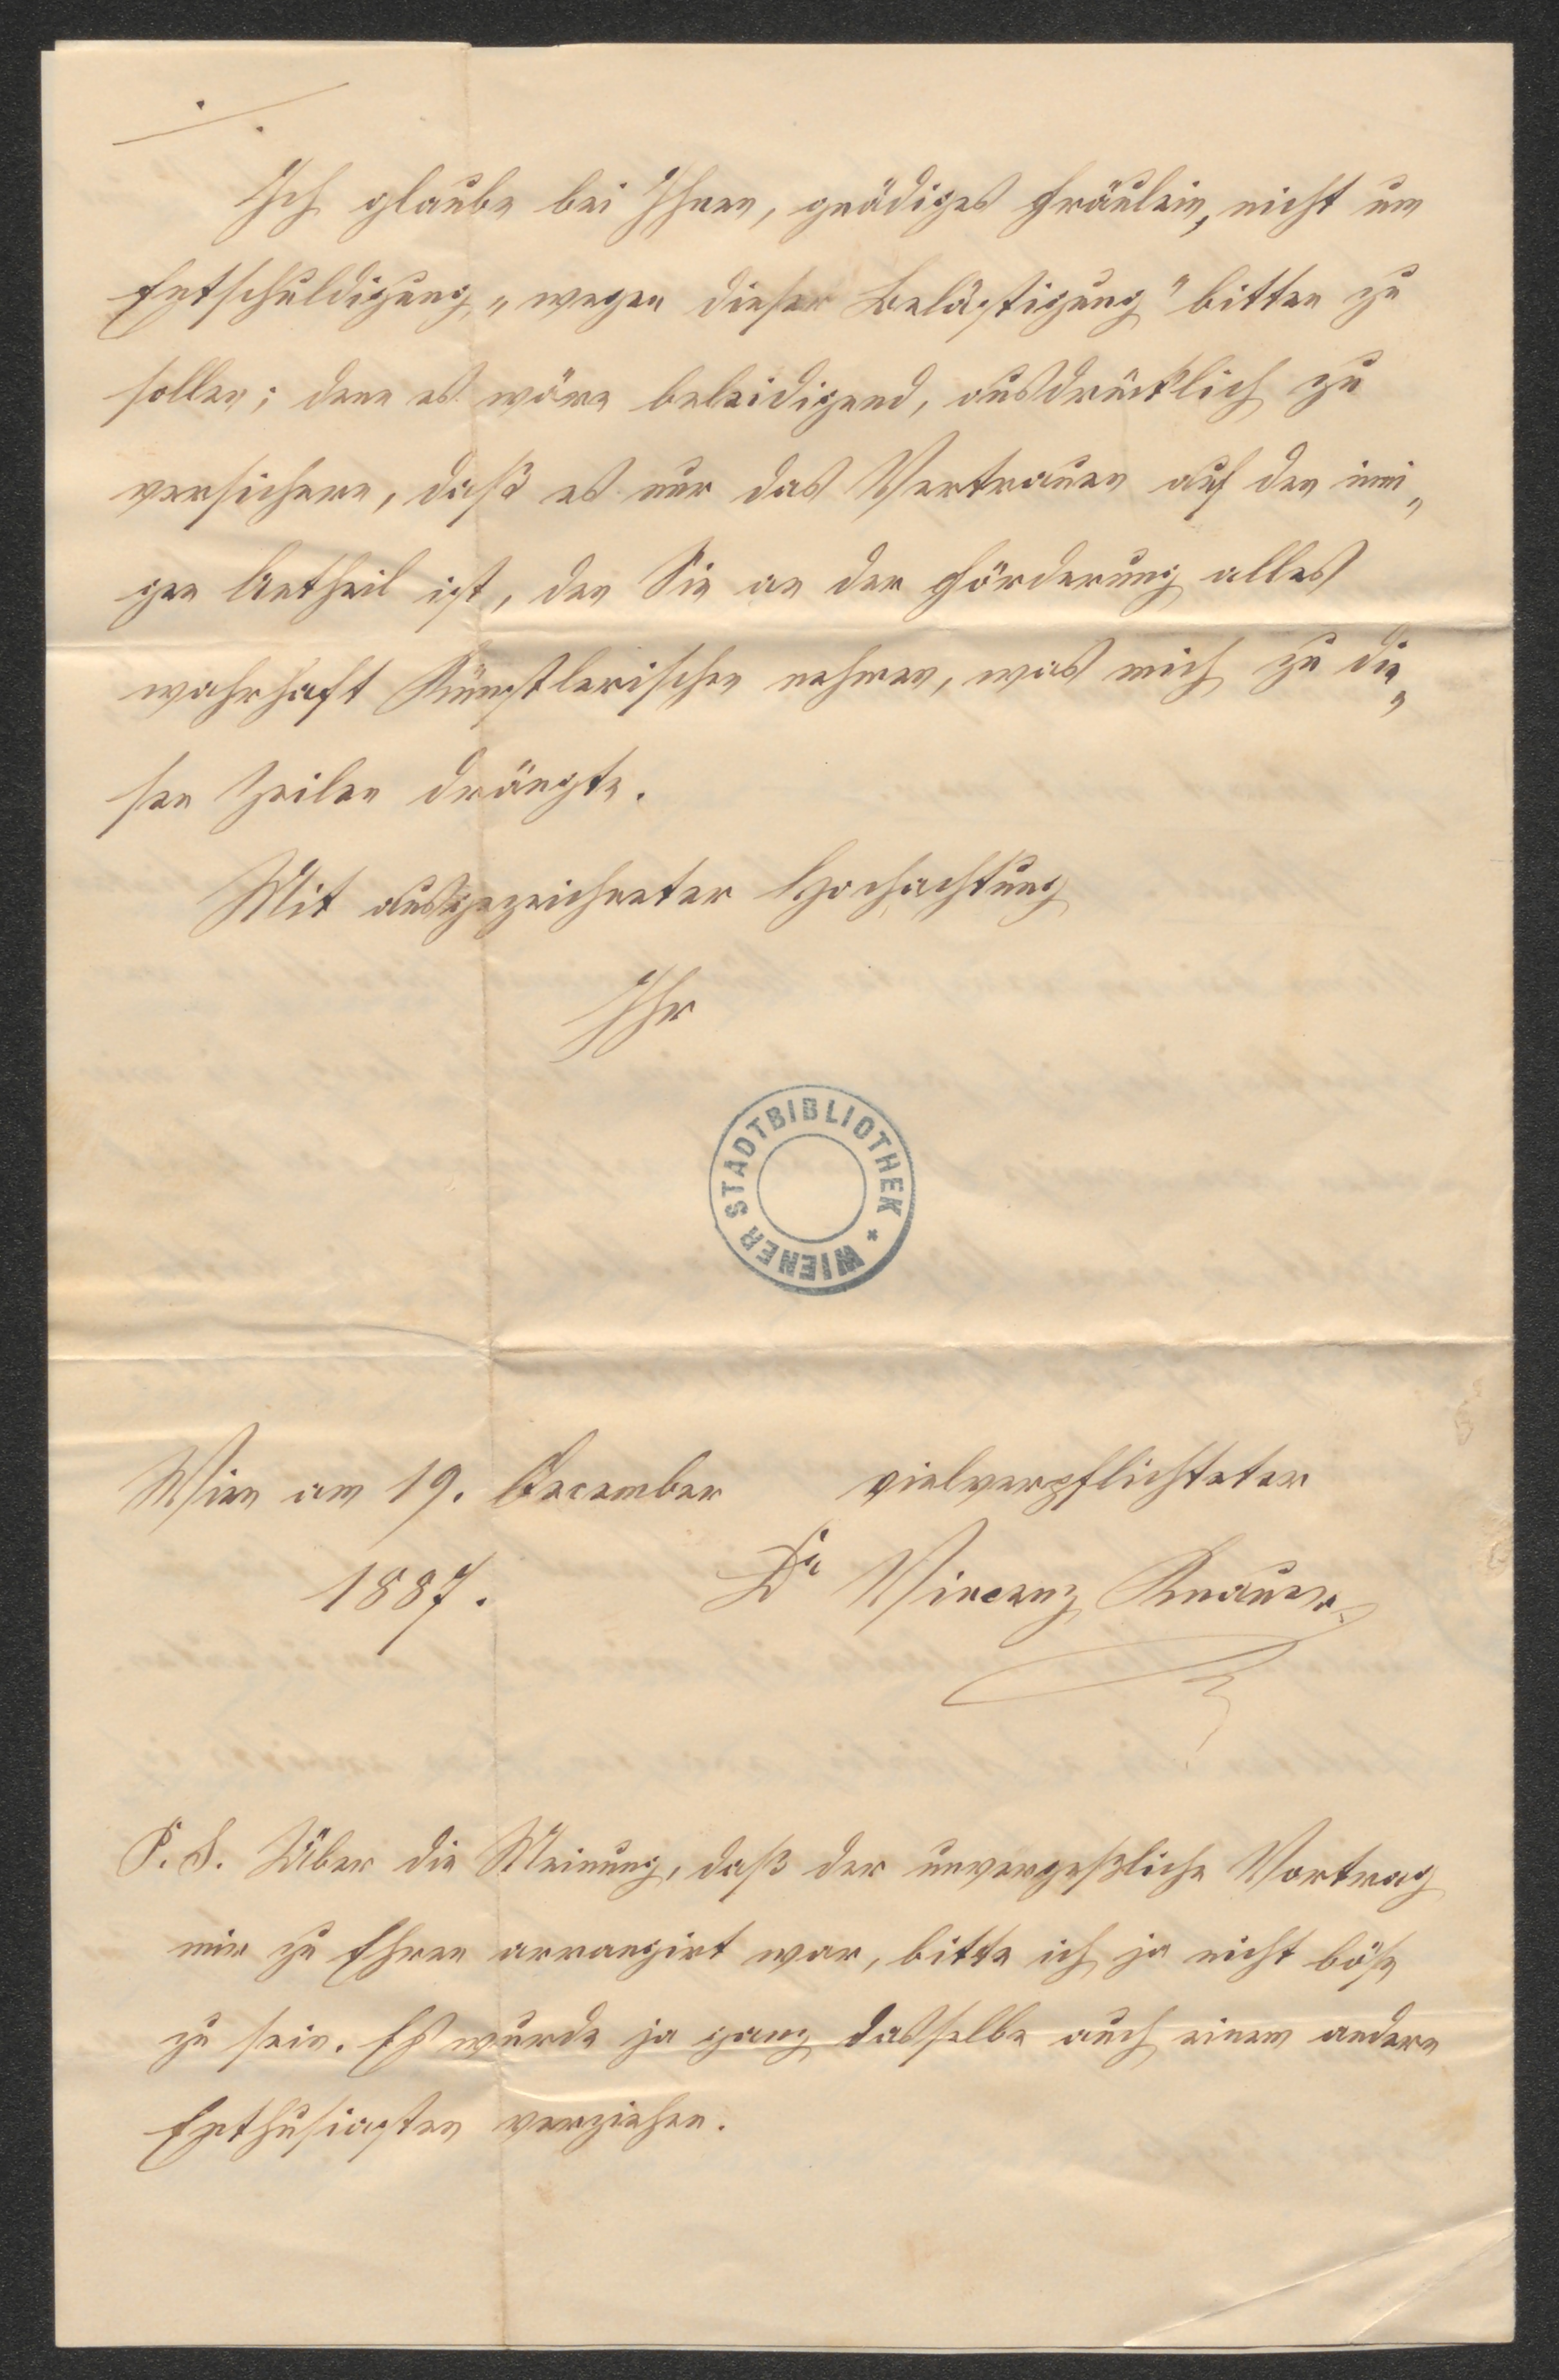 ./.
Ich glaube bei Ihnen, gnädiges Fräulein, nicht um
Entschuldigung „wegen dieser Belästigung" bitten zu
sollen; denn es wäre beleidigend, ausdrücklich zu
versichern, daß es nur das Vertrauen auf den inni„
gen Antheil ist, den Sie an der Förderung alles
wahrhaft Künstlerischen nehmen, was mich zu die„
sen Zeilen drängte.
Mit ausgezeichneter Hochachtung
Ihr
WIENER STADTBIBLIOTHEK *
Wien am 19. December vielverpflichteter
1887. Dr Vincenz Knauer
P. S. Über die Meinung, daß der unvergeßliche Vortrag
mir zu Ehren arrangirt war, bitte ich ja nicht böse
zu sein. Es wurde ja ganz dasselbe auch einem andern
Enthusiasten verziehen.